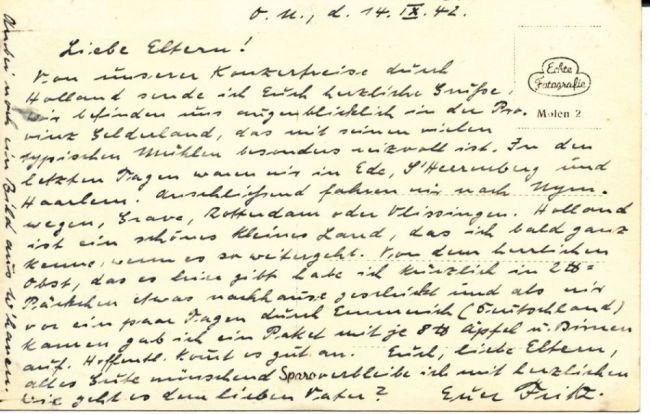 O. U., d. 14. IX. 42.
Liebe Eltern!
Von unserer Konzertreise durch
Holland sende ich Euch herzliche Grüße,
wir befinden uns augenblicklich in der Pro-
vinz Gelderland, das mit seinen vielen
typischen Mühlen besonders reizvoll ist. In den
letzten Tagen waren wir in Ede, S'Heerenberg und
Haarlem. Anschließend fahren wir nach Nym-
wegen, Grave, Rotterdam oder Vlissingen. Holland
ist ein schönes kleines Land, das ich bald ganz
kenne, wenn es so weitergeht. Von dem herrlichen
Obst, das es hier gibt habe ich kürzlich in 2 ℔=
Päckchen etwas nachhause geschickt und als wir
vor ein paar Tagen durch Emmerich (Deutschland)
kamen gab ich ein Paket mit je 8 ℔ Äpfel u. Birnen
auf. Hoffentl. kommt es gut an. Euch, liebe Eltern,
alles Gute wünschend verbleibe ich mit herzlichen
Wie geht es dem lieben Vater? Euer Fritz.
Anbei noch ein Bild aus
Echte
Fotografie
Molen 2
Sparo